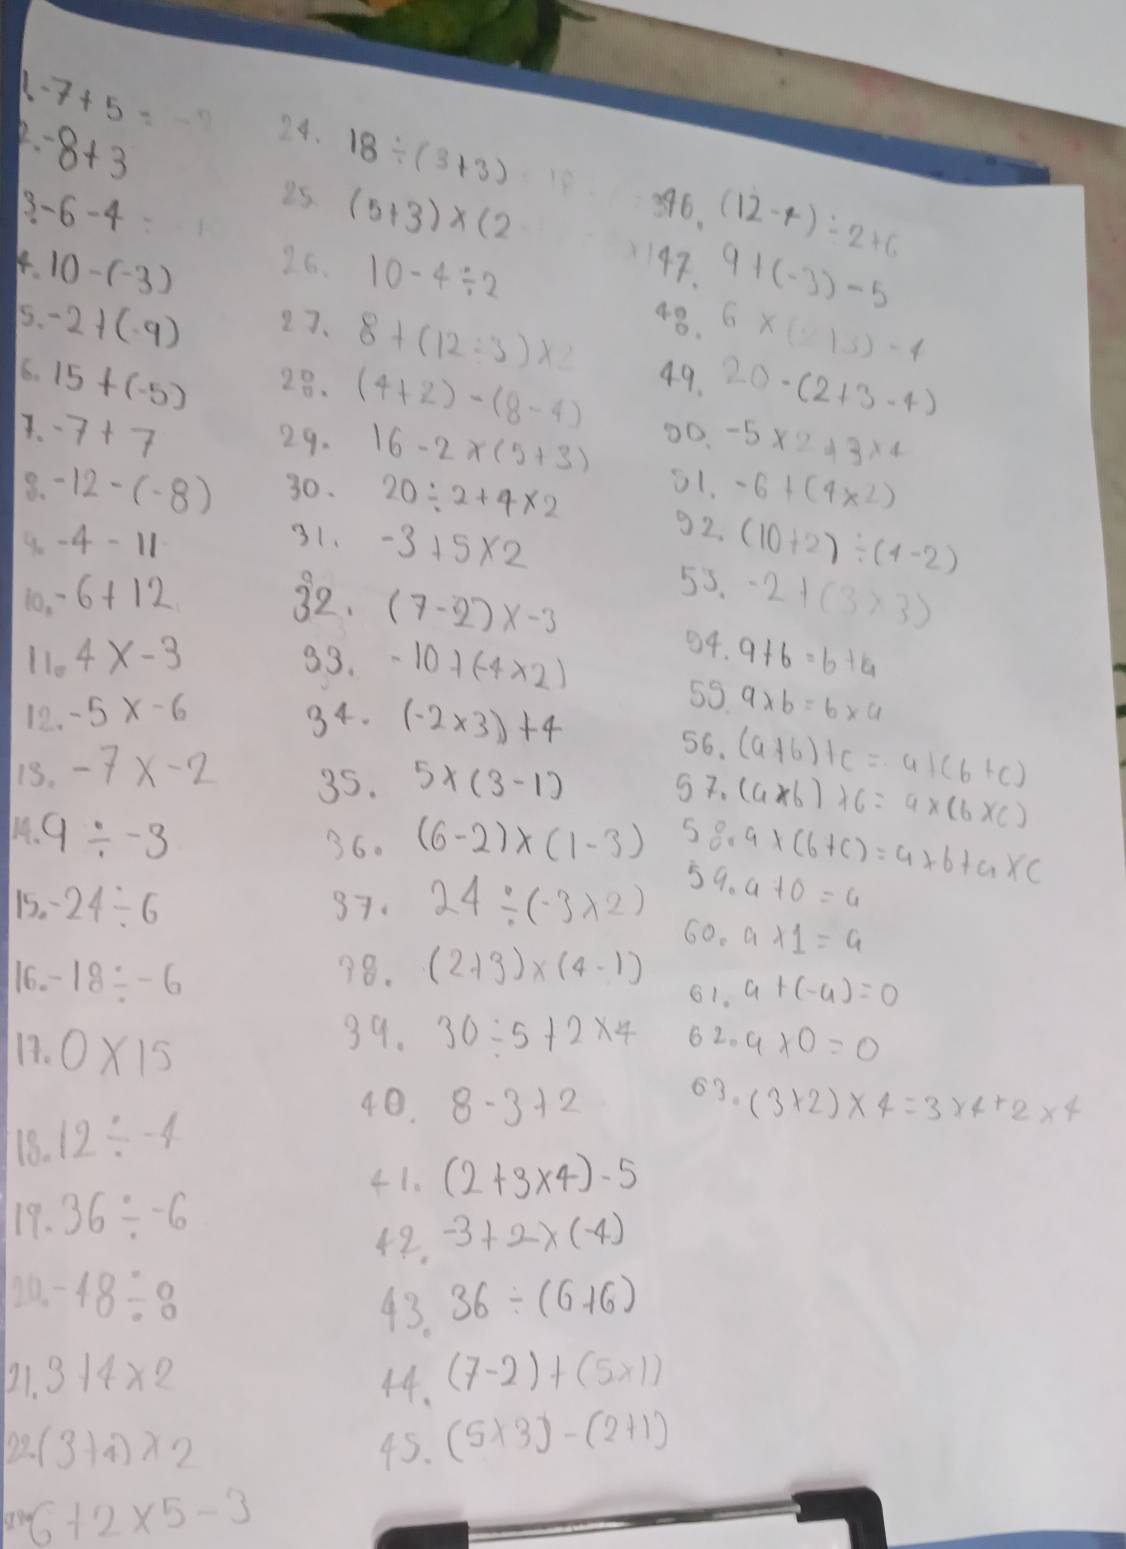 1. -7+5 = -2
2. -8+3
3. -6-4 =
4. 10-(-3)
5. -2+(-9)
6. 15+(-5)
7. -7+7
8. -12-(-8)
9. -4-11
10. -6+12
11. 4x-3
12. -5x-6
13. -7x-2
14. 9÷-3
15. -24÷6
16. -18÷-6
17. 0x15
18. 12÷-4
19. 36÷-6
20. -48÷8
21. 3+4x2
22. (3+4)x2
6+2x5-3
24. 18÷(3+3)
25. (5+3)x(2
26. 10-4÷2
27. 8+(12÷3)x2
28. (4+2)-(8-4)
29. 16-2x(5+3)
30. 20÷2+4x2
31. -3+5x2
32. (7-2)x-3
33. -10+(-4x2)
34. (-2x3)+4
35. 5x(3-1)
36. (6-2)x(1-3)
37. 24÷(-3x2)
38. (2+3)x(4-1)
39. 30÷5+2x4
40. 8-3+2
41. (2+3x4)-5
42. -3+2x(-4)
43. 36÷(6+6)
44. (7-2)+(5x1)
45. (5x3)-(2+1)
46. (12-4)÷2+6
47. 9+(-3)-5
48. 6x(2+3)-4
49. 20-(2+3-4)
50. -5x2+3x4
51. -6+(4x2)
52. (10+2)÷(4-2)
53. -2+(3x3)
54. a+b=b+a
55. axb=bxa
56. (a+b)+c=a+(b+c)
57. (axb)xc=ax(bxc)
58. ax(b+c)=axb+axc
59. a+0=a
60. ax1=a
61. a+(-a)=0
62. ax0=0
63. (3+2)x4=3x4+2x4